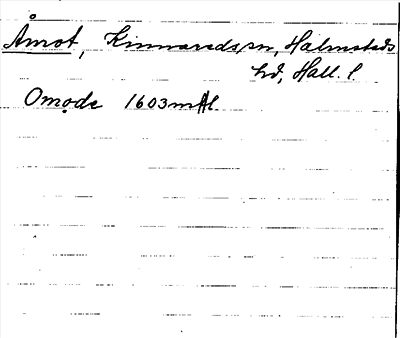 Åmot, Kinnaredssn, Halmstads
hd, Hall. l.
Omode 1603mtl